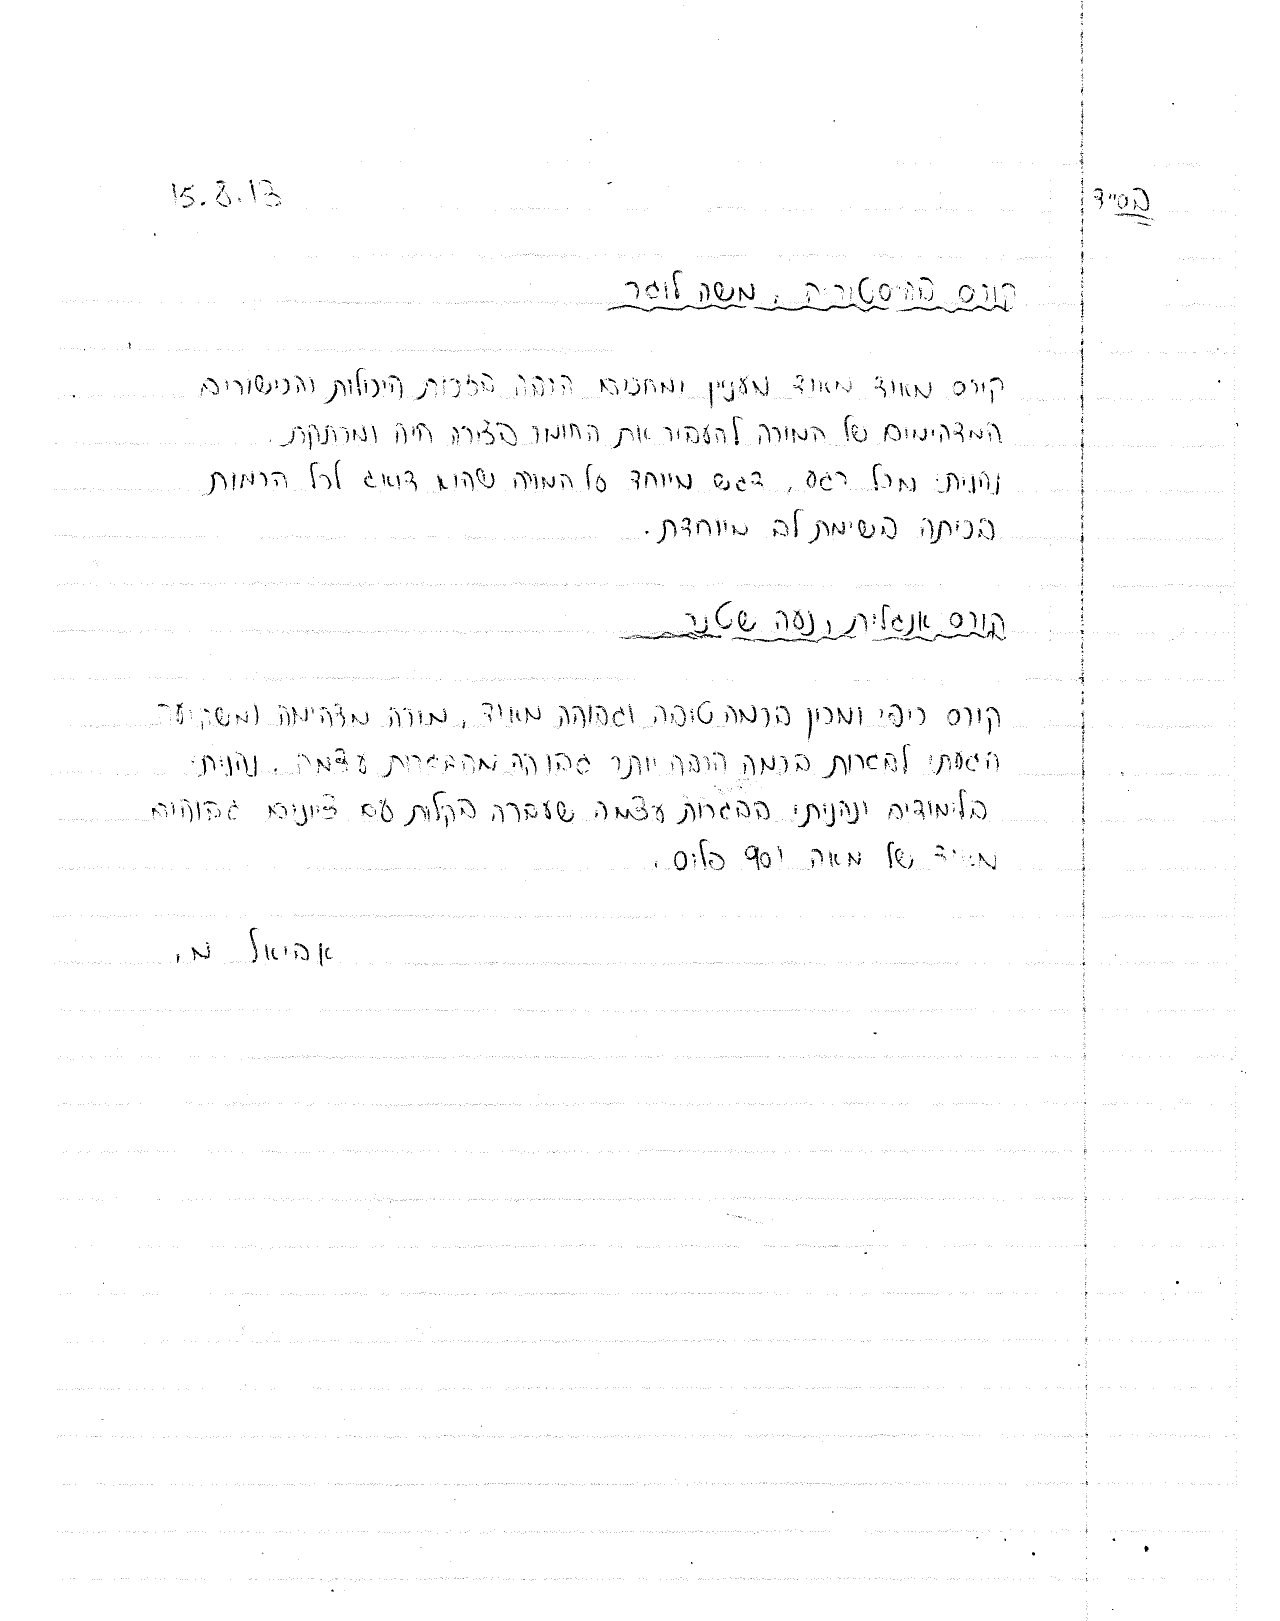 בס״ד
15.8.13
קורס בהיסטוריה, משה לוגר
קורס מאוד מאוד מעניין ומחכים הרבה בזכות היכולות והכישורים
המדהימים של המורה להעביר את החומר בצורה חיה ומרתקת.
נהניתי מכל רגע, דגש מיוחד על המורה שהוא דואג לכל הרמות
בכיתה בשימת לב מיוחדת.
קורס אנגלית, נעה שטנר
קורס כיפי ומכין ברמה טובה וגבוהה מאוד, מורה מדהימה ומשקיעה
הגעתי לבגרות ברמה הרבה יותר גבוהה מהבגרות עצמה. נהניתי
בלימודים ונהניתי בבגרות עצמה שעברה בקלות עם ציונים גבוהים
מאוד של מאה וסף פלוס.
אביאל מ.